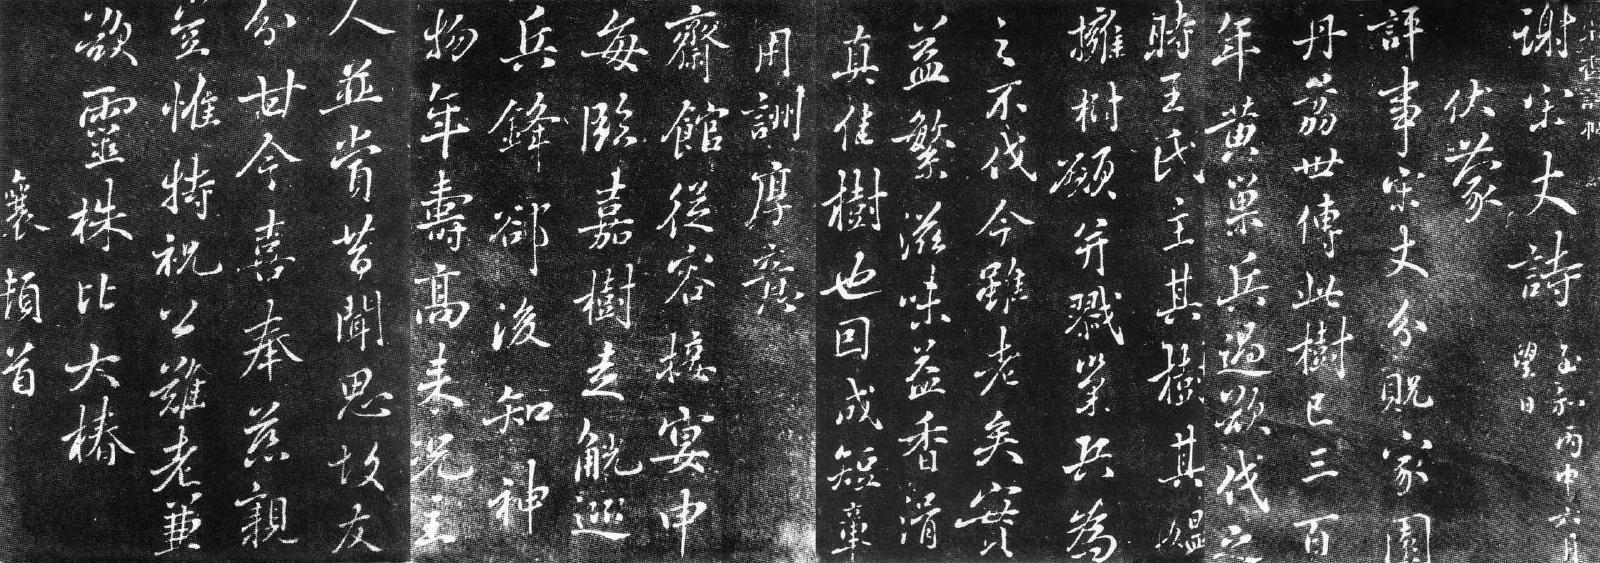 謝宋丈詩 至和丙申六月
望日
伏蒙
評事宋丈分貺家園
丹荔世傳此樹已三百
年黄巢兵過欲伐之
時王氏主其樹其媪
擁樹願并戮巢兵為
之不伐今雖老矣實
益繁滋味益香滑
真佳樹也因成短章
用詶厚意
齋館從容接宴申
每臨嘉樹走觥巡
兵鋒卻後知神
物年壽髙来況主
人並賞昔聞思故友
分甘今喜奉慈親
豈惟特祝公難老兼
欲靈株比大椿
襄頓首